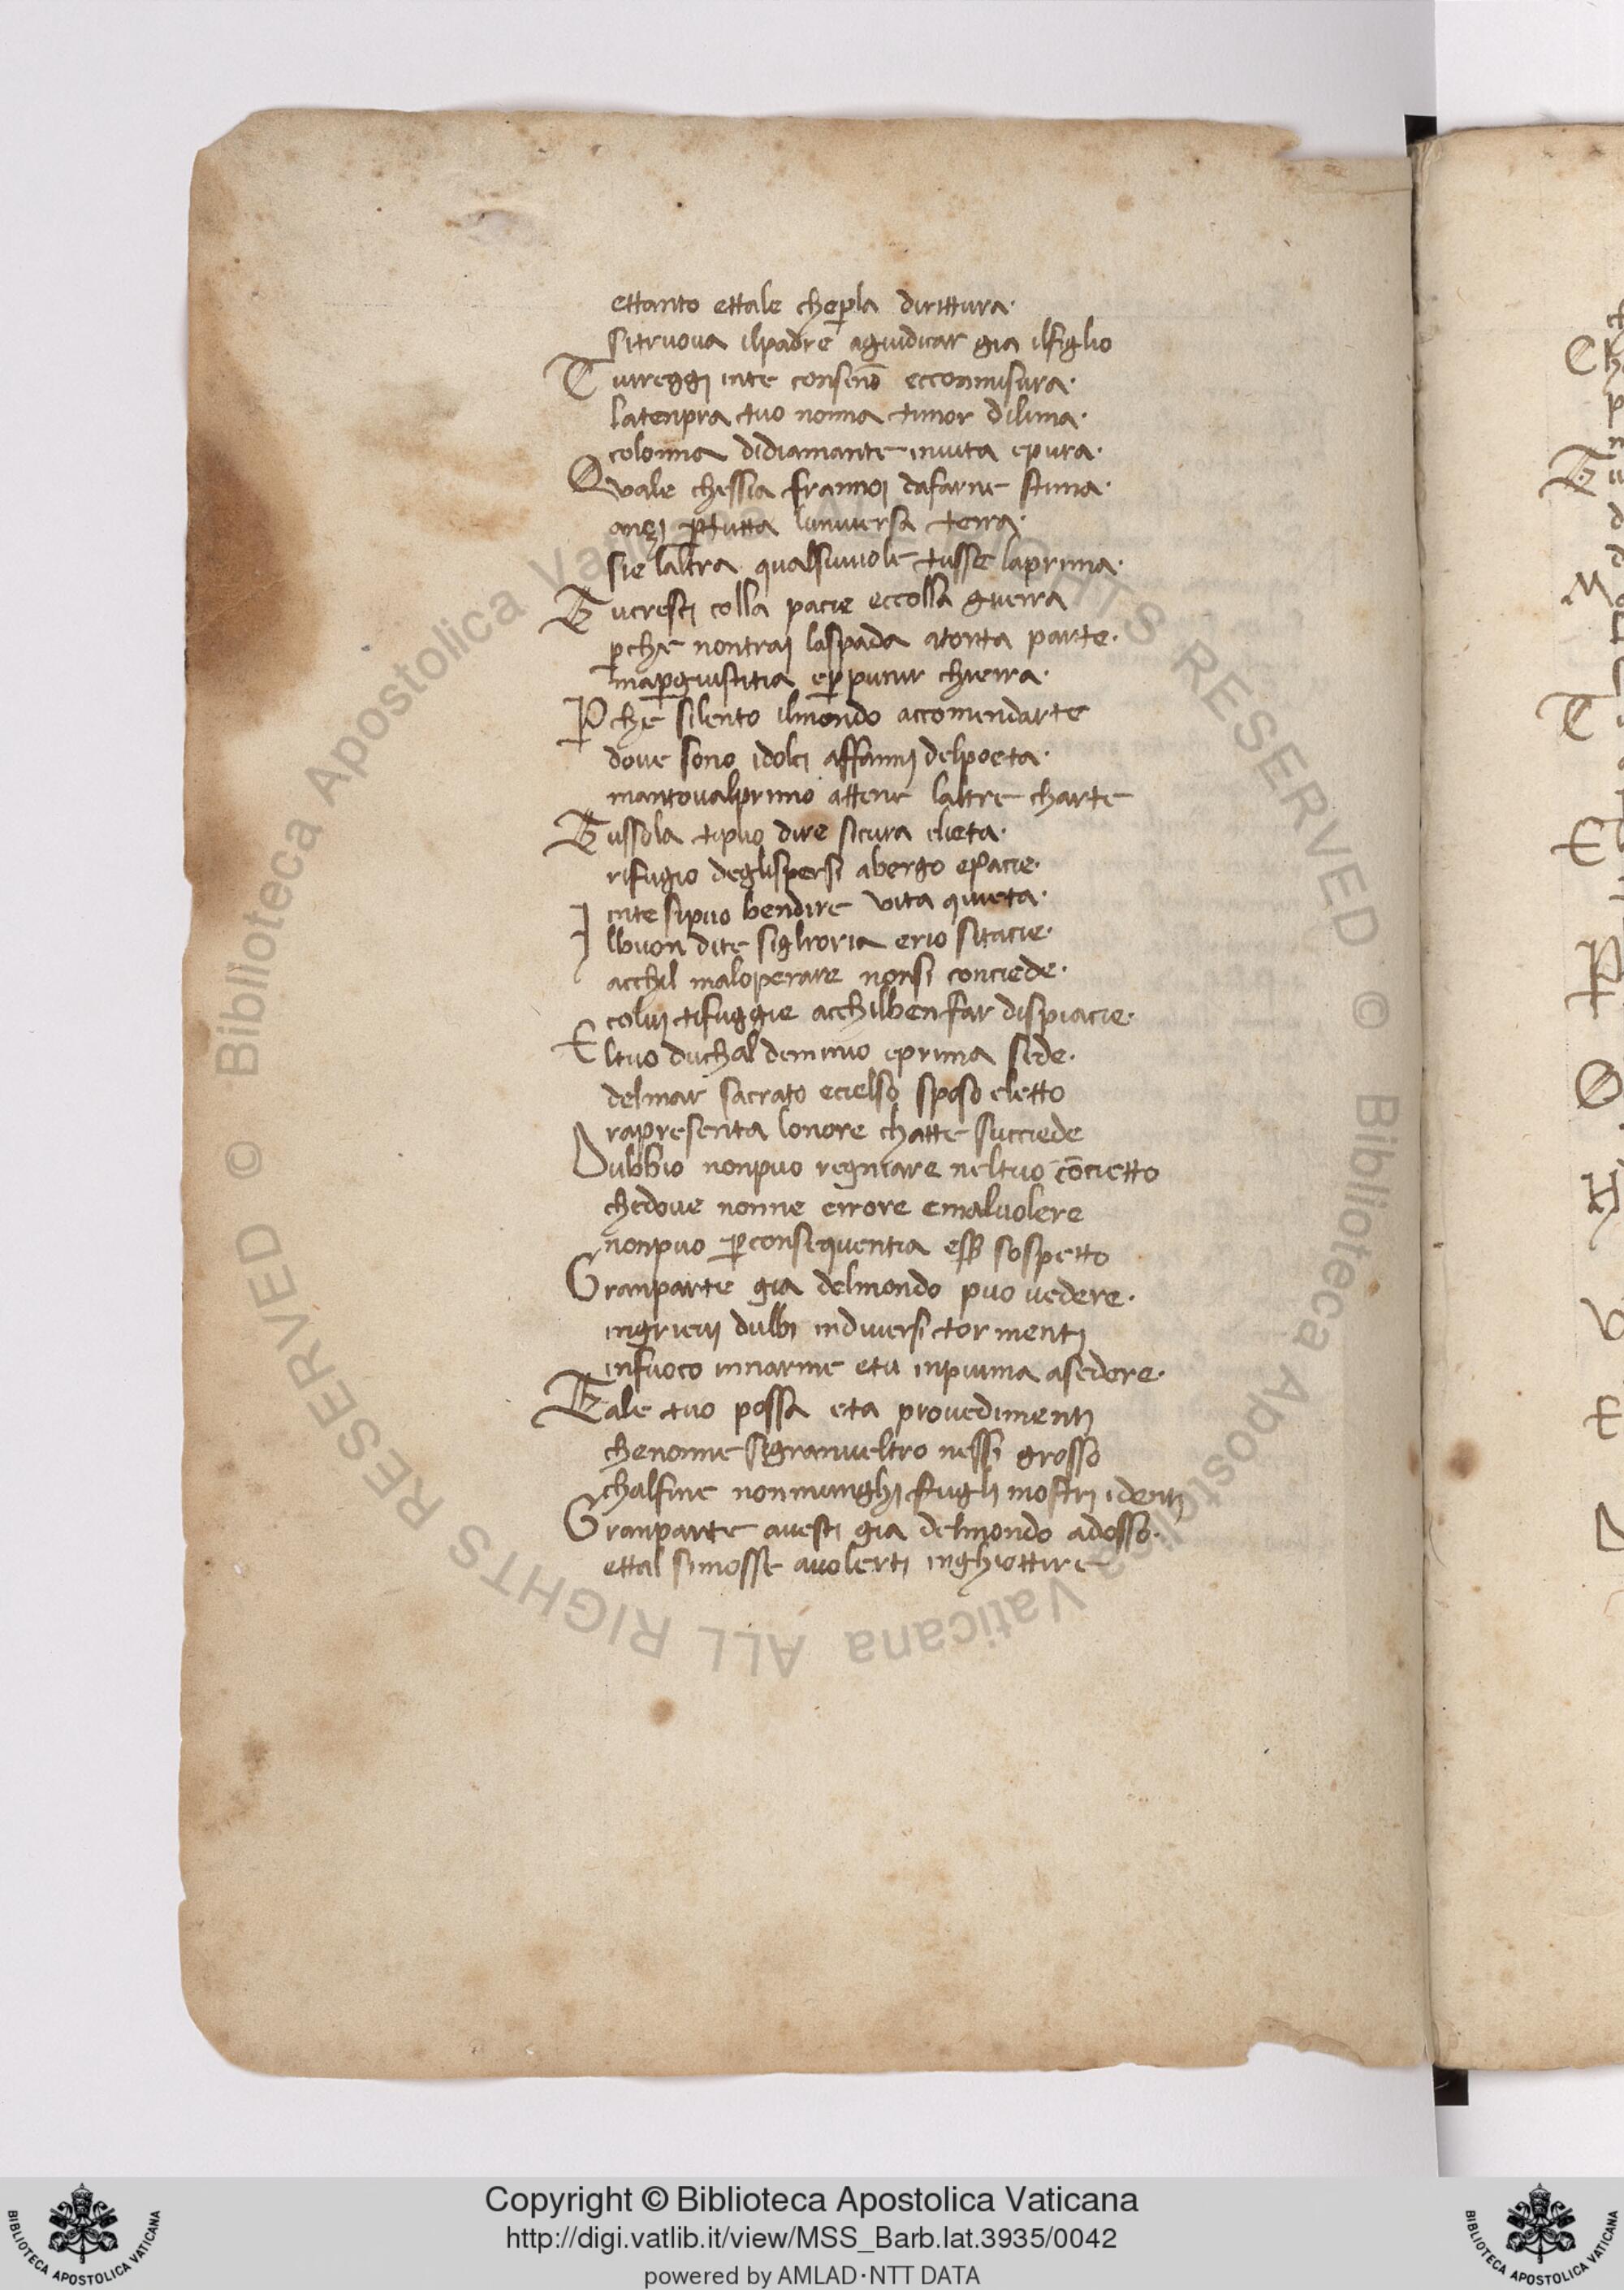 ettanto ettale cheꝑla dirittura·
sitruova ilpadre agiudicar gia ilfiglio
Tuireggi inte consenō ecconmisura·
latenpra tuo nonna timor dilima·
colonna didiamante invita epura·
Quale chessia franmoj dafarne stima·
anҫi ꝑtutta luniversa terra·
sie laltra qualsivuole tusse laprima·
Tucresti colla pacie eccolla guerra
ꝑche nontraj laspada atorta parte·
maꝑgiustitia eꝑpunir chierra·
Ꝑche silento ilmondo accomendarte
dove sono idolci affannj delpoeta·
mantovalprimo attene laltre charte
Tussola tipuo dire sicura elieta·
rifugio deglispersi abergo epacie·
inte sipuo bendire vita quieta·
Ilbuon dite sighroria erio sitacie·
acchil maloperare nonsi conciede·
coluj tifuggie acchilbenfar dispiacie·
Eltuo duchal dominio eprima sede·
delmar sacrato ecielso sposo eletto
rapresenta lonore chatte succiede
Dubbio nonpuo regniare neltuo cōcietto
chedove nonne errore emalvolere
nonpuo ꝑconsequentia eſſ sospetto
Granparte gia delmondo puo vedere·
ingrievj dulbi indiversi tormentj
infuoco innarme etu inpiuma asedere·
Tale tuo possa eta provedimentj
chenonne sigranveltro nessi grosso
chalfine nonmunghj fughj mostrj identj
Granparte avesti gia delmondo adosso·
ettal simosse avolerti inghiottire
© Biblioteca Apostolica Vaticana ALL RIGHTS RESERVED © Biblioteca Apostolica Vaticana ALL RIGHTS RESERVED
Copyright © Biblioteca Apostolica Vaticana
http://digi.vatlib.it/view/MSS_Barb.lat.3935/0042
powered by AMLAD·NTT DATA
BIBLIOTECA APOSTOLICA VATICANA
BIBLIOTECA APOSTOLICA VATICANA